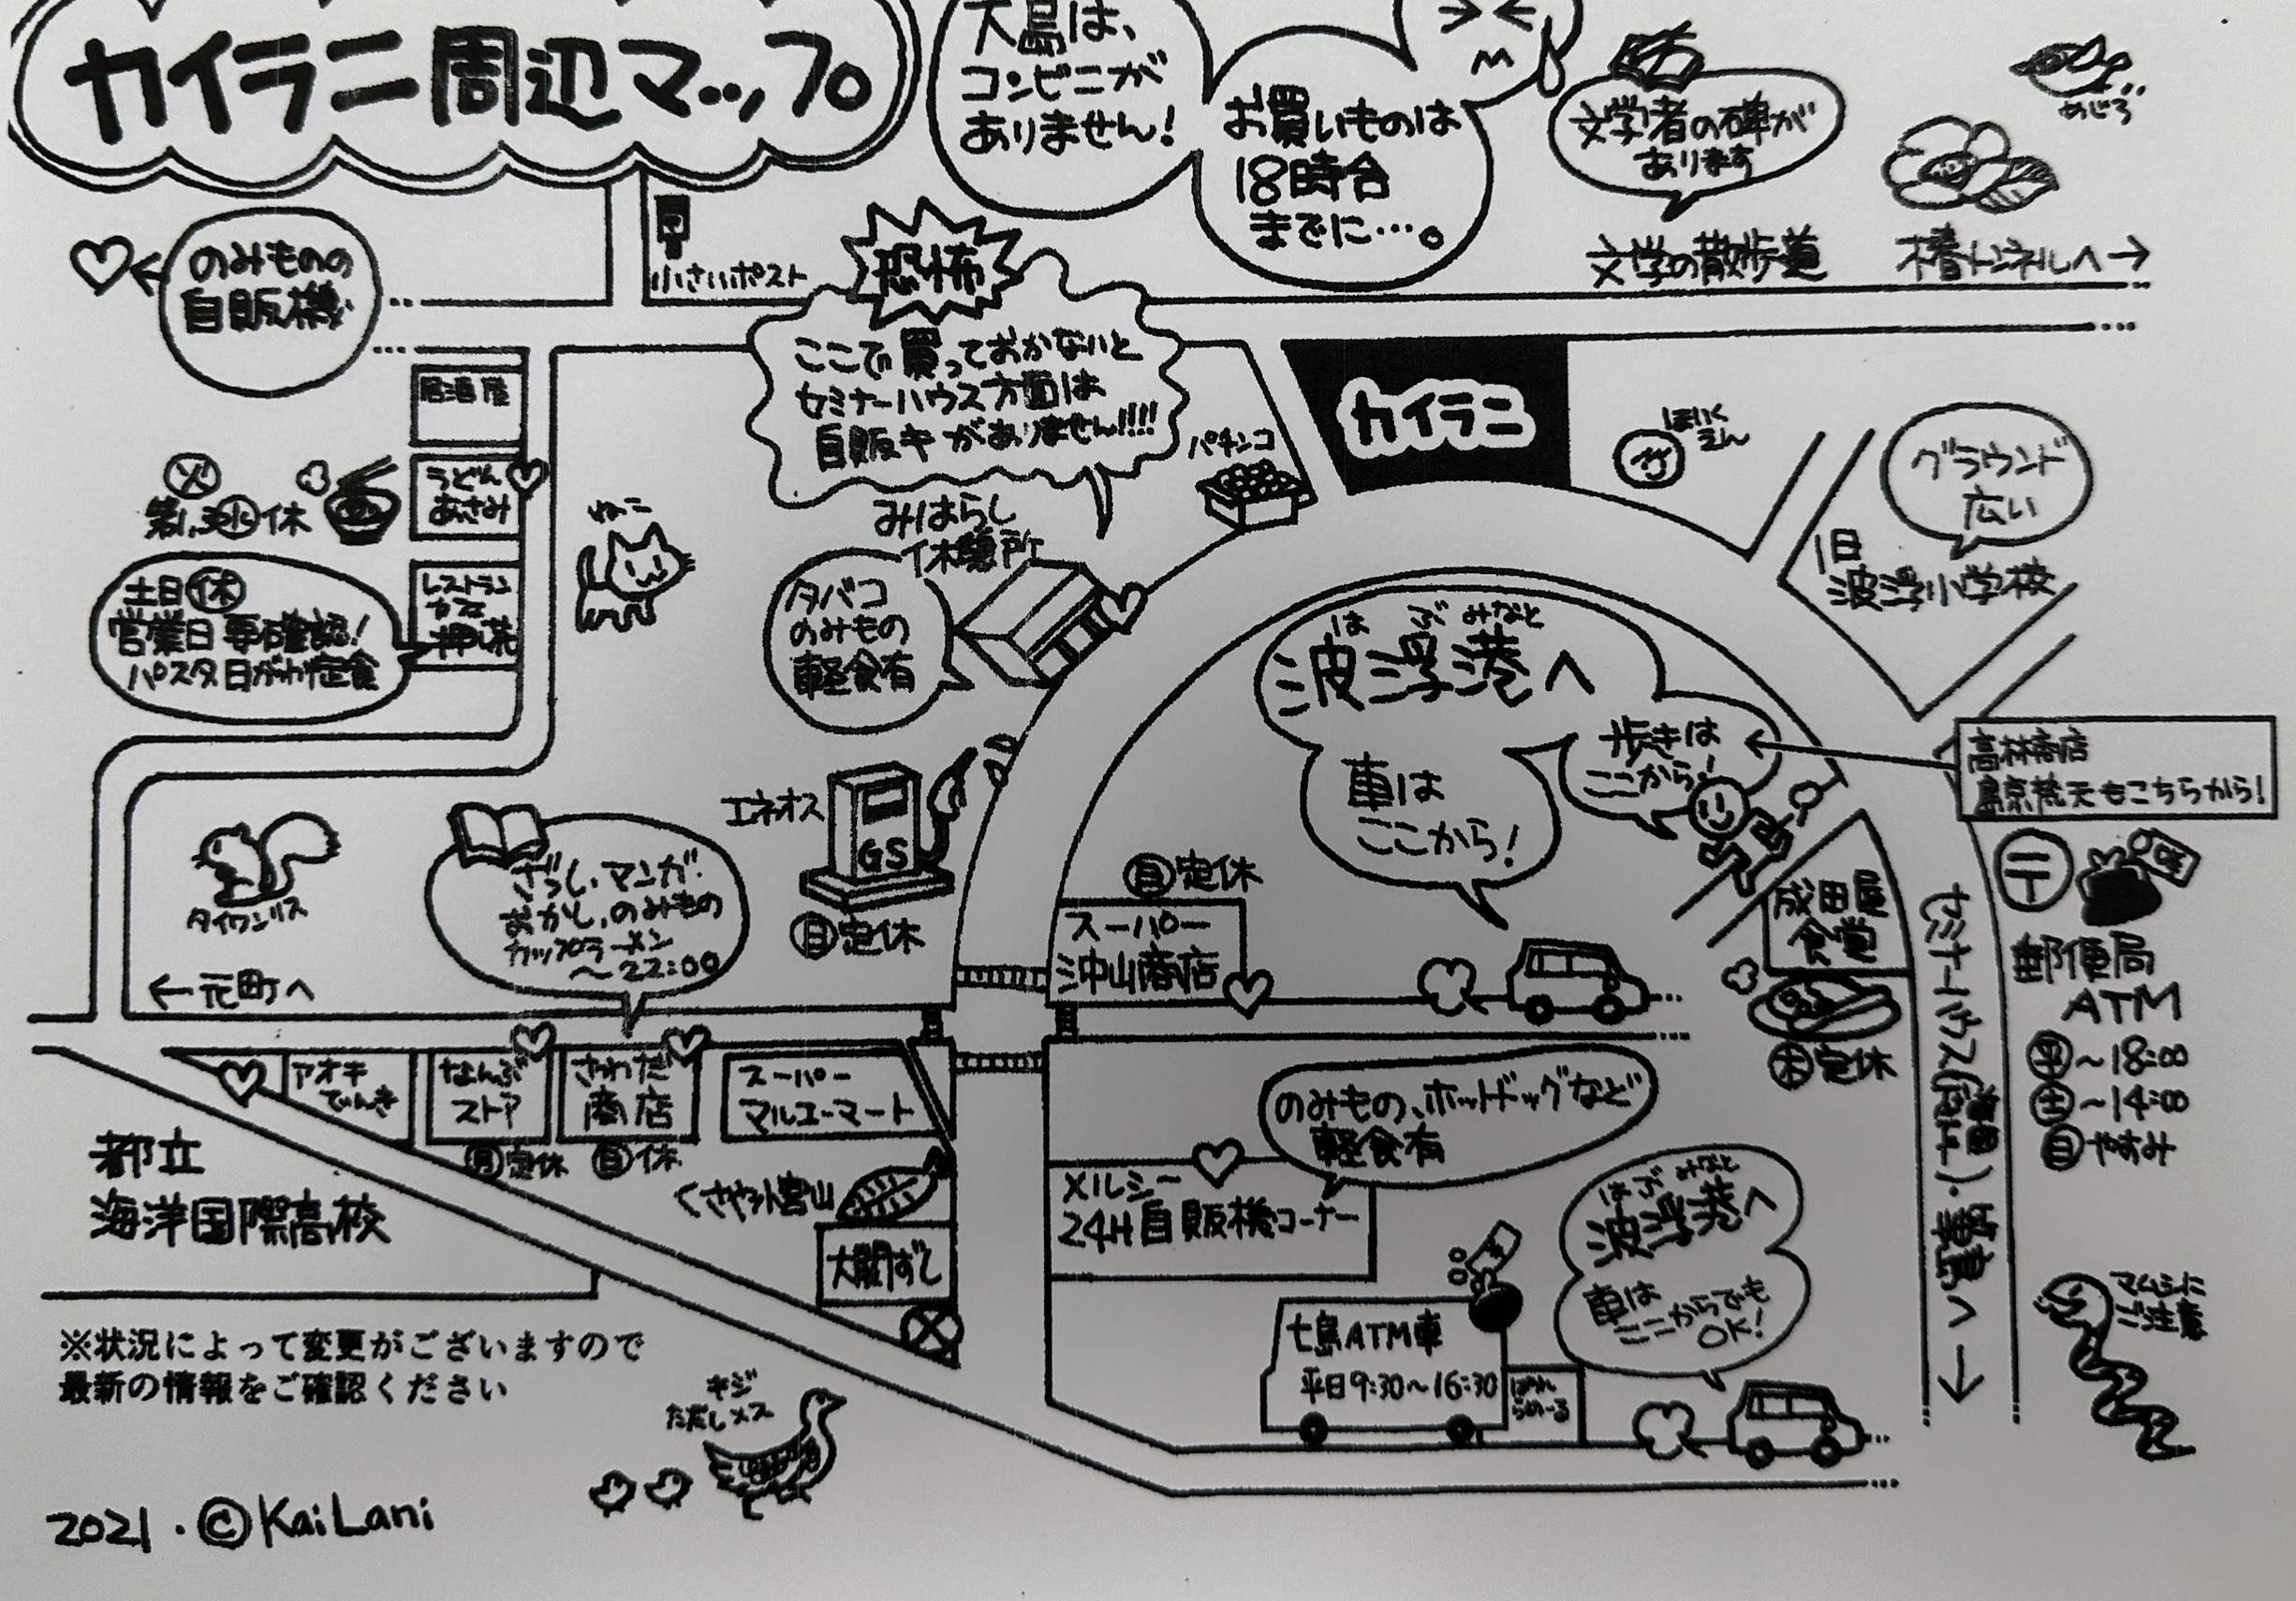 カイラニ周辺マップ
大島は、
コンビニが
ありません！
お買いものは
18時台
までに…。
文学者の碑が
あります
めじろ
文学の散歩道
椿トンネルへ→
のみものの
自販機
小さいポスト
恐怖
ここで買っておかないと
セミナーハウス方面は
自販キがありません!!!!
パチンコ
カイラニ
ほいく
えん
グラウンド
広い
旧
波浮小学校
居酒屋
うどん
あさみ
休
レストラン
カフェ
土日㊡
営業日要確認！
パスタ日がわり定食
ねこ
みはらし
休憩所
タバコ
のみもの
軽食有
はぶみなと
波浮港へ
車は
ここから！
歩きは
ここから！
高林商店
島京梵天もこちらから！
エネオス
GS
㊐定休
タイワンリス
ざっし、マンガ！
おかし、のみもの
カップラーメン
～22:00
←元町へ
㊐定休
スーパー
沖山商店
成田屋
食堂
㊍定休
〒
郵便局
ATM
㊣～18:00
㊏～14:00
㊐やすみ
アオキ
でんき
なんぶ
ストア
㊊定休
さわだ
商店
㊐休
スーパー
マルエーマート
くさや小宮山
大関ずし
都立
海洋国際高校
のみもの、ホットドッグなど
軽食有
メルシー
24H自販機コーナー
はぶみなと
波浮港へ
車は
ここからでも
OK！
七島ATM車
平日9:30～16:30
マムシに
ご注意
※状況によって変更がございますので
最新の情報をご確認ください
キジ
ただしメス
2021.©KaiLani